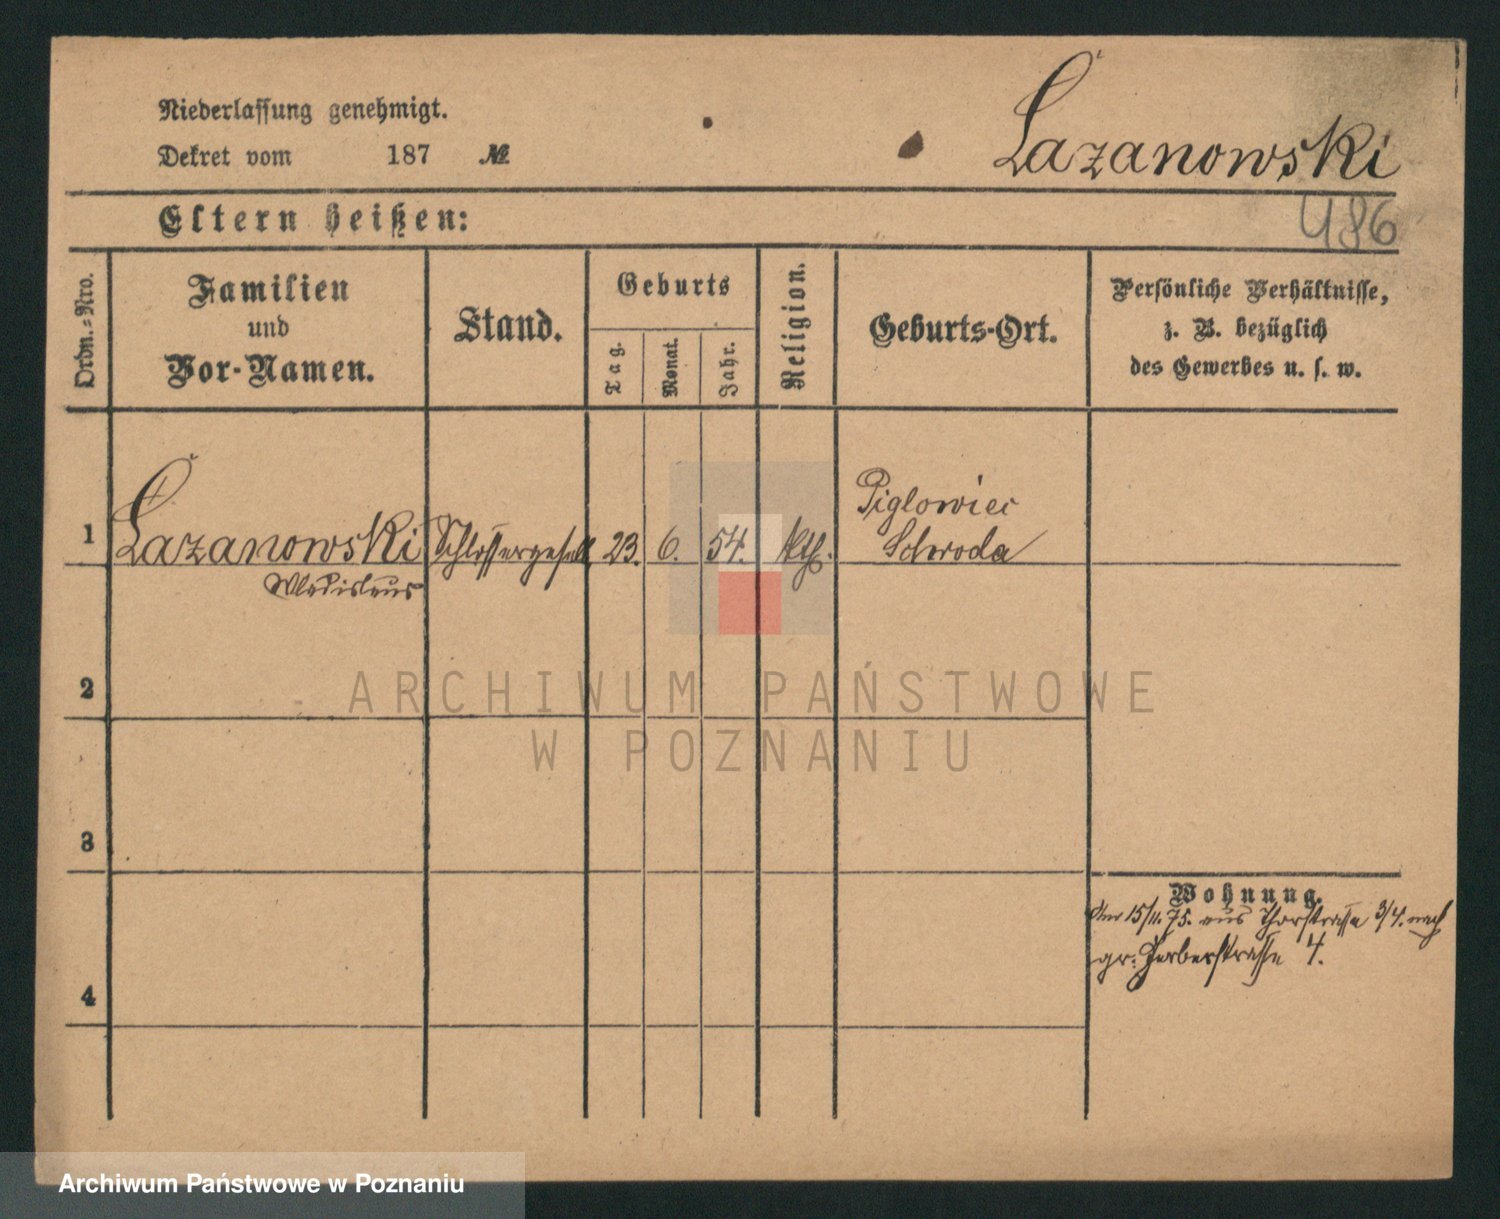 Niederlassung genehmigt.
Dekret vom 187 №
Lazanowski
Eltern heißen:
486
Ordn.=Nro.
Familien
und
Vor-Namen.
Stand.
Geburts
Tag.
Monat.
Jahr.
Religion.
Geburts-Ort.
Persönliche Verhältnisse,
z. B. bezüglich
des Gewerbes u. s. w.
1
Lazanowski
Wladislaus
Schlossergesell
23.
6.
54.
kth.
Piglowiec
Schroda
ARCHIWUM PAŃSTWOWE
W POZNANIU
2
3
4
Wohnung.
15/11. 75. aus Thorstrasse 3/4. nach
gr. Gerberstrasse 4.
Archiwum Państwowe w Poznaniu